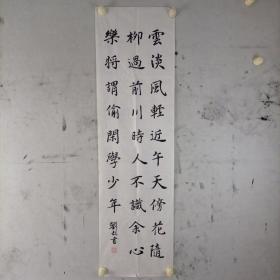 雲淡風輕近午天傍花隨
柳過前川時人不識余心
樂將謂偷閑學少年